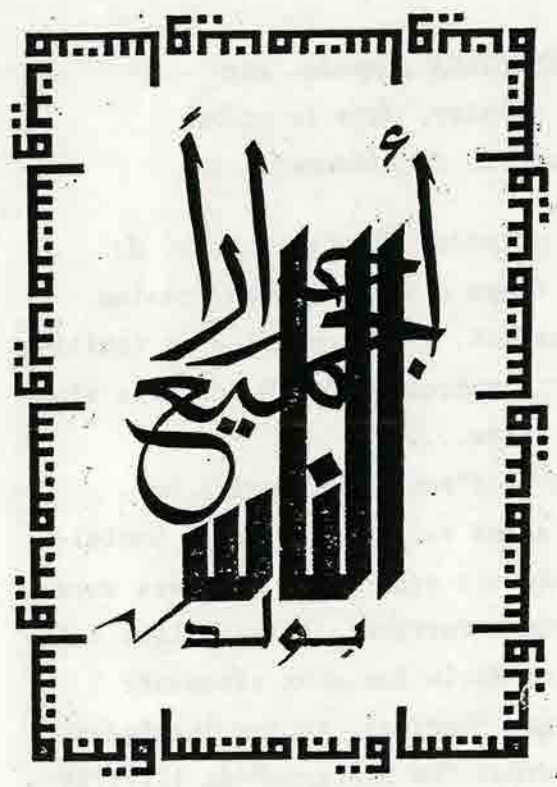 يولد
جميع
الناس
أحراراً
متساوين متساوين